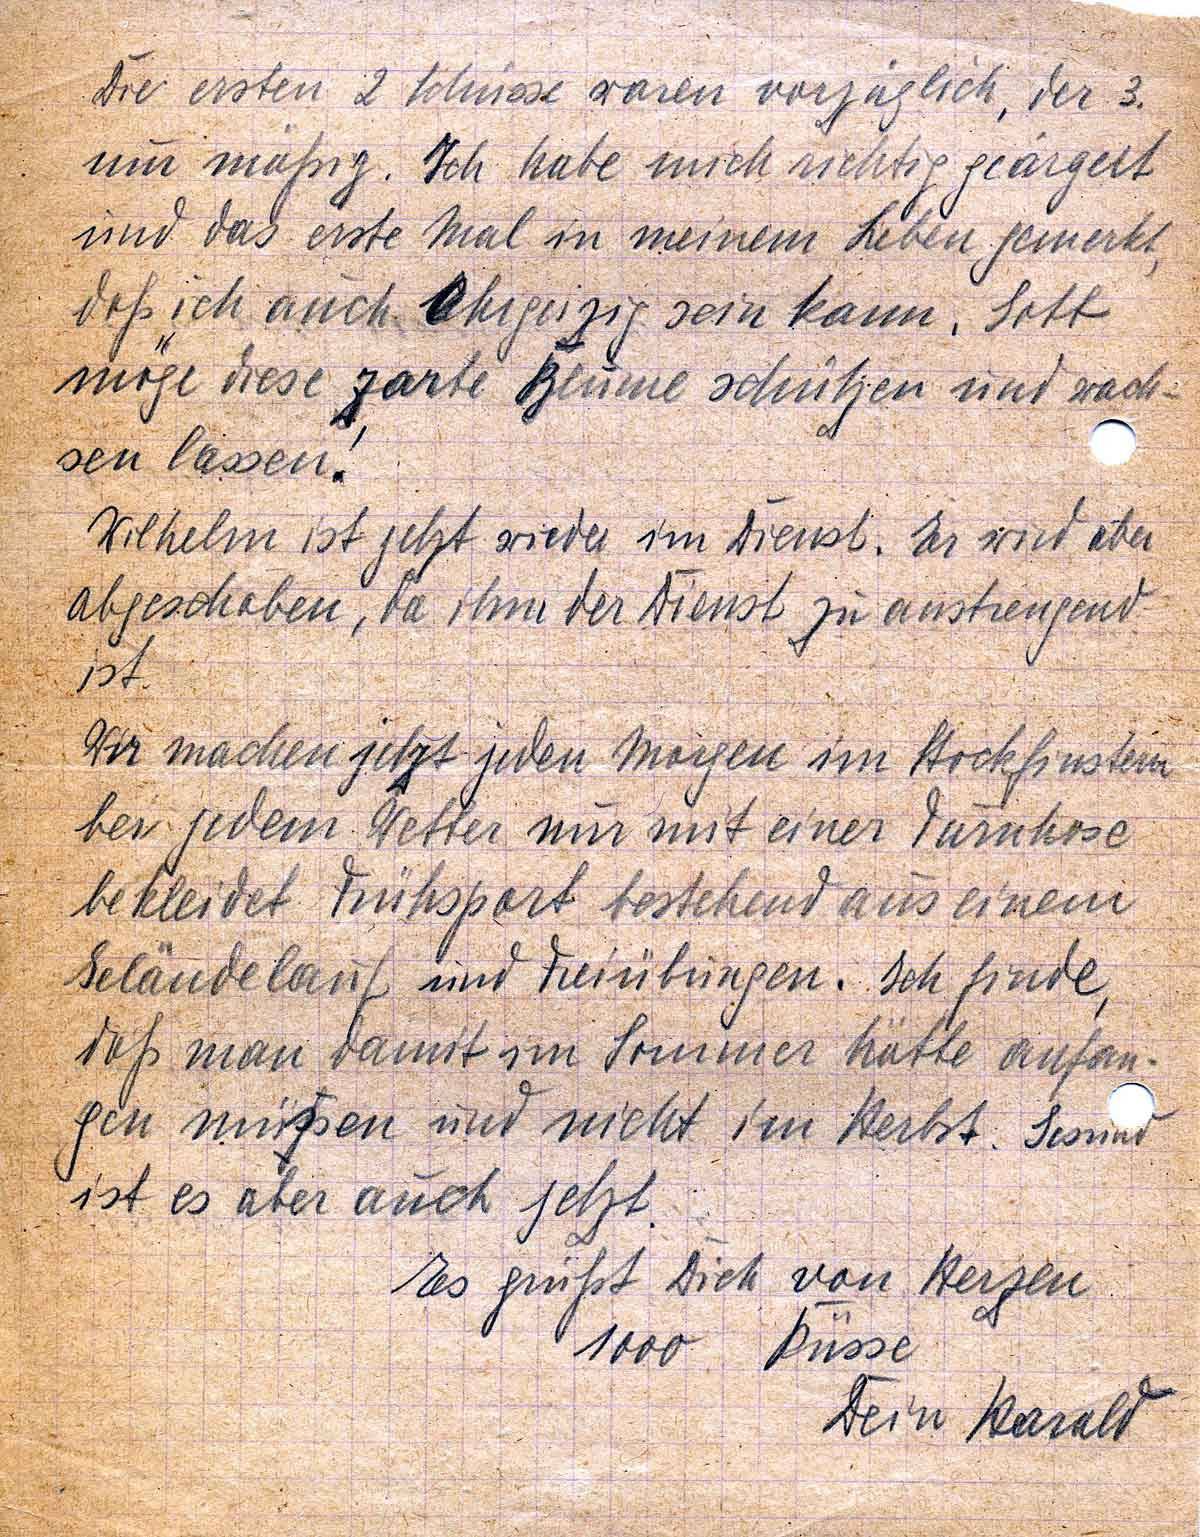 Die ersten 2 Schüsse waren vorzüglich, der 3.
nur mäßig. Ich habe mich richtig geärgert
und das erste Mal in meinem Leben gemerkt,
daß ich auch Ehrgeizig sein kann. Gott
möge diese zarte Blume schützen und wach-
sen lassen!
Wilhelm ist jetzt wieder im Dienst. Er wird aber
abgeschoben, da ihm der Dienst zu anstrengend
ist.
Wir machen jetzt jeden Morgen im Stockfinstern
bei jedem Wetter nur mit einer Turnhose
bekleidet Frühsport bestehend aus einem
Geländelauf und Freiübungen. Ich finde,
daß man damit im Sommer hätte anfan-
gen müßen und nicht im Herbst. Gesund
ist es aber auch jetzt.
Es grüßt Dich von Herzen
1000 Küsse
Dein Harald